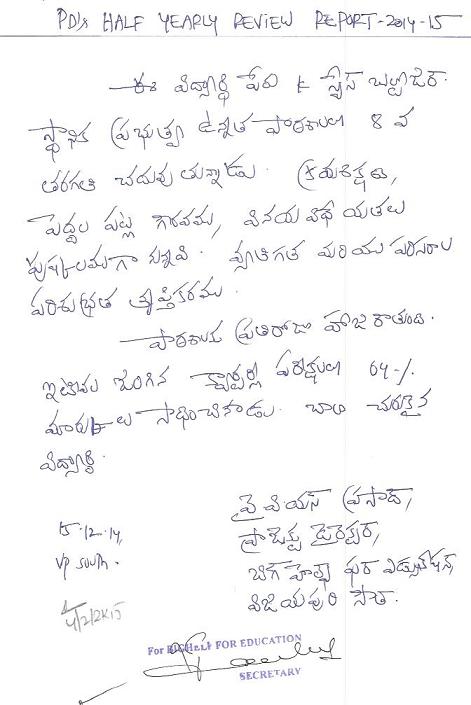 PD's HALF YEARLY REVIEW REPORT-2014-15
ఈ విద్యార్థి పేరు
స్థానిక ప్రభుత్వ ఉన్నత పాఠశాలలో 8 వ
తరగతి చదువుతున్నాడు. క్రమశిక్షణ,
పెద్దల పట్ల గౌరవము, వినయ విధేయతలు
పుష్కలముగా వున్నవి. వ్యక్తిగత మరియు పరిసరాల
పరిశుభ్రత తృప్తికరము.
పాఠశాలకు ప్రతిరోజు హాజరౌతాడు.
ఇటీవల జరిగిన క్వార్టర్లీ పరీక్షలలో 64-%
మార్కులు సాధించినాడు. చాలా చురుకైన
విద్యార్థి.
వై పి యస్ ప్రసాద్,
ప్రాజెక్టు డైరెక్టర్,
బిగ్ హెల్ప్ ఫర్ ఎడ్యుకేషన్,
విజయపురి సౌత్.
15.12.14,
VP South.
4/2/2K15
For BIGHELP FOR EDUCATION
SECRETARY